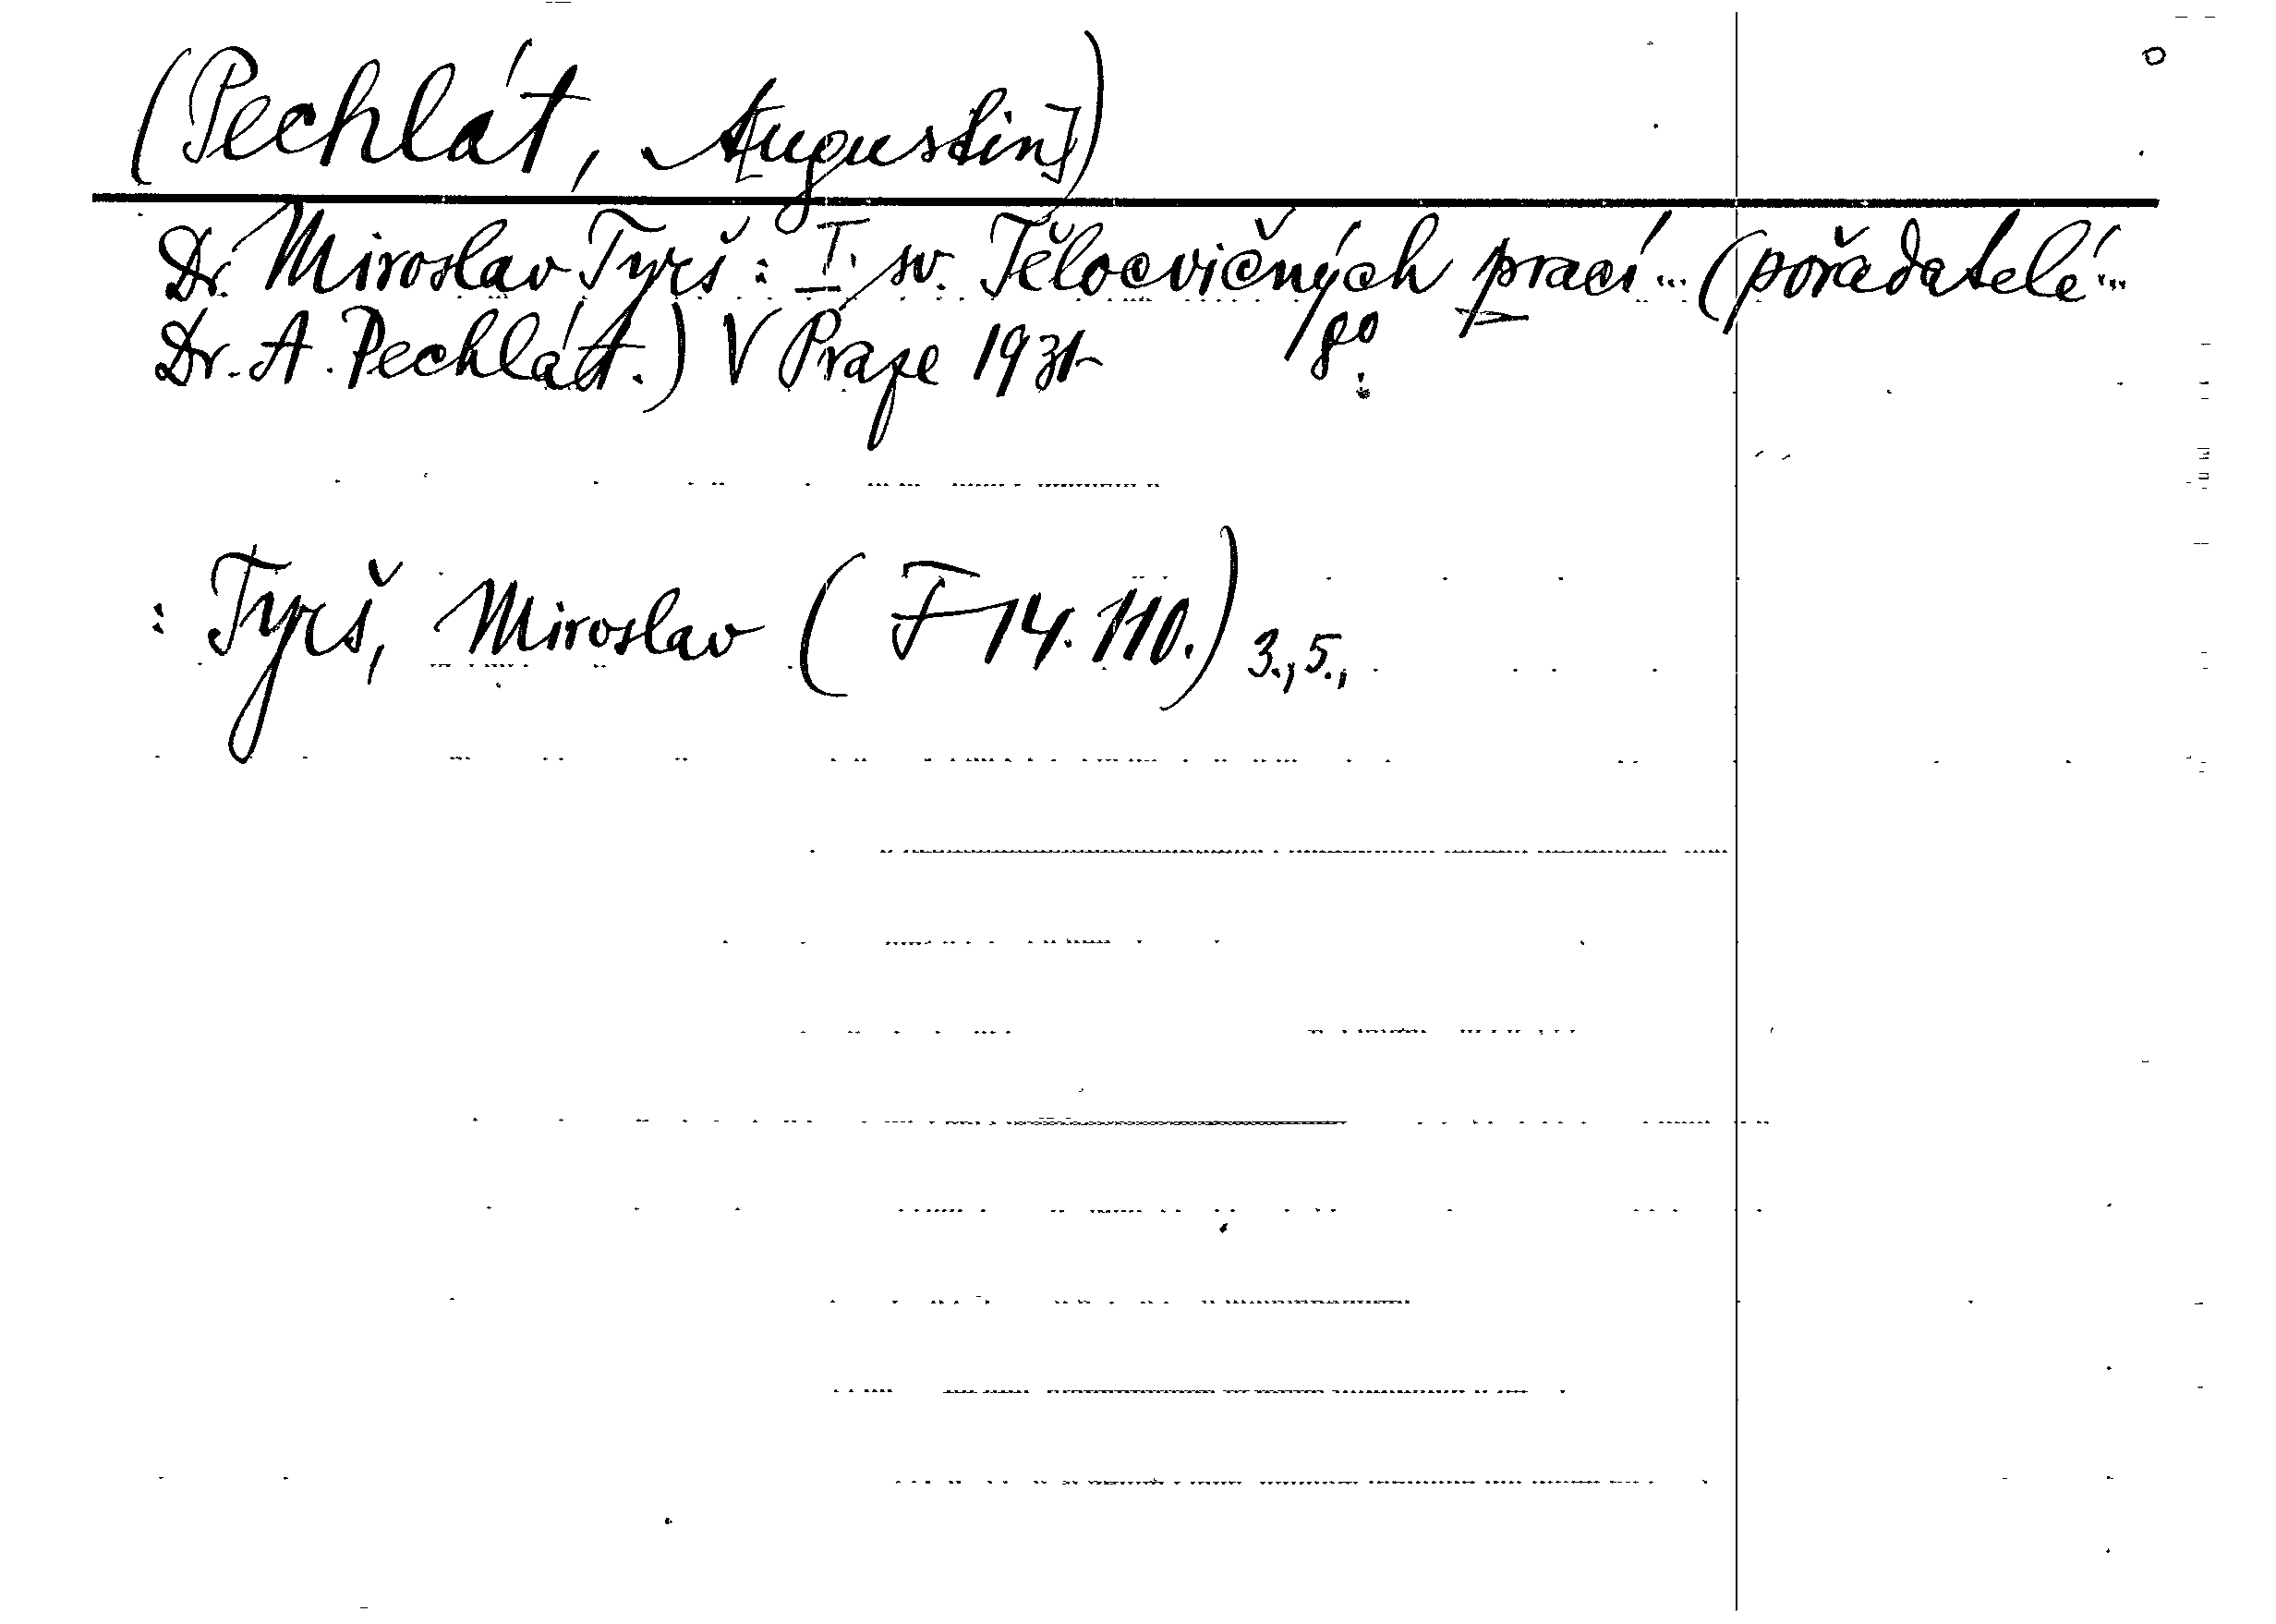 (Pechlát, A[ugustin])
Dr. Miroslav Tyrš: I. sv. Tělocvičných prací... (pořadatelé...
Dr. A. Pechlát.) V Praze 1931- 8°
: Tyrš, Miroslav (F 14.110.) 3.,5.,